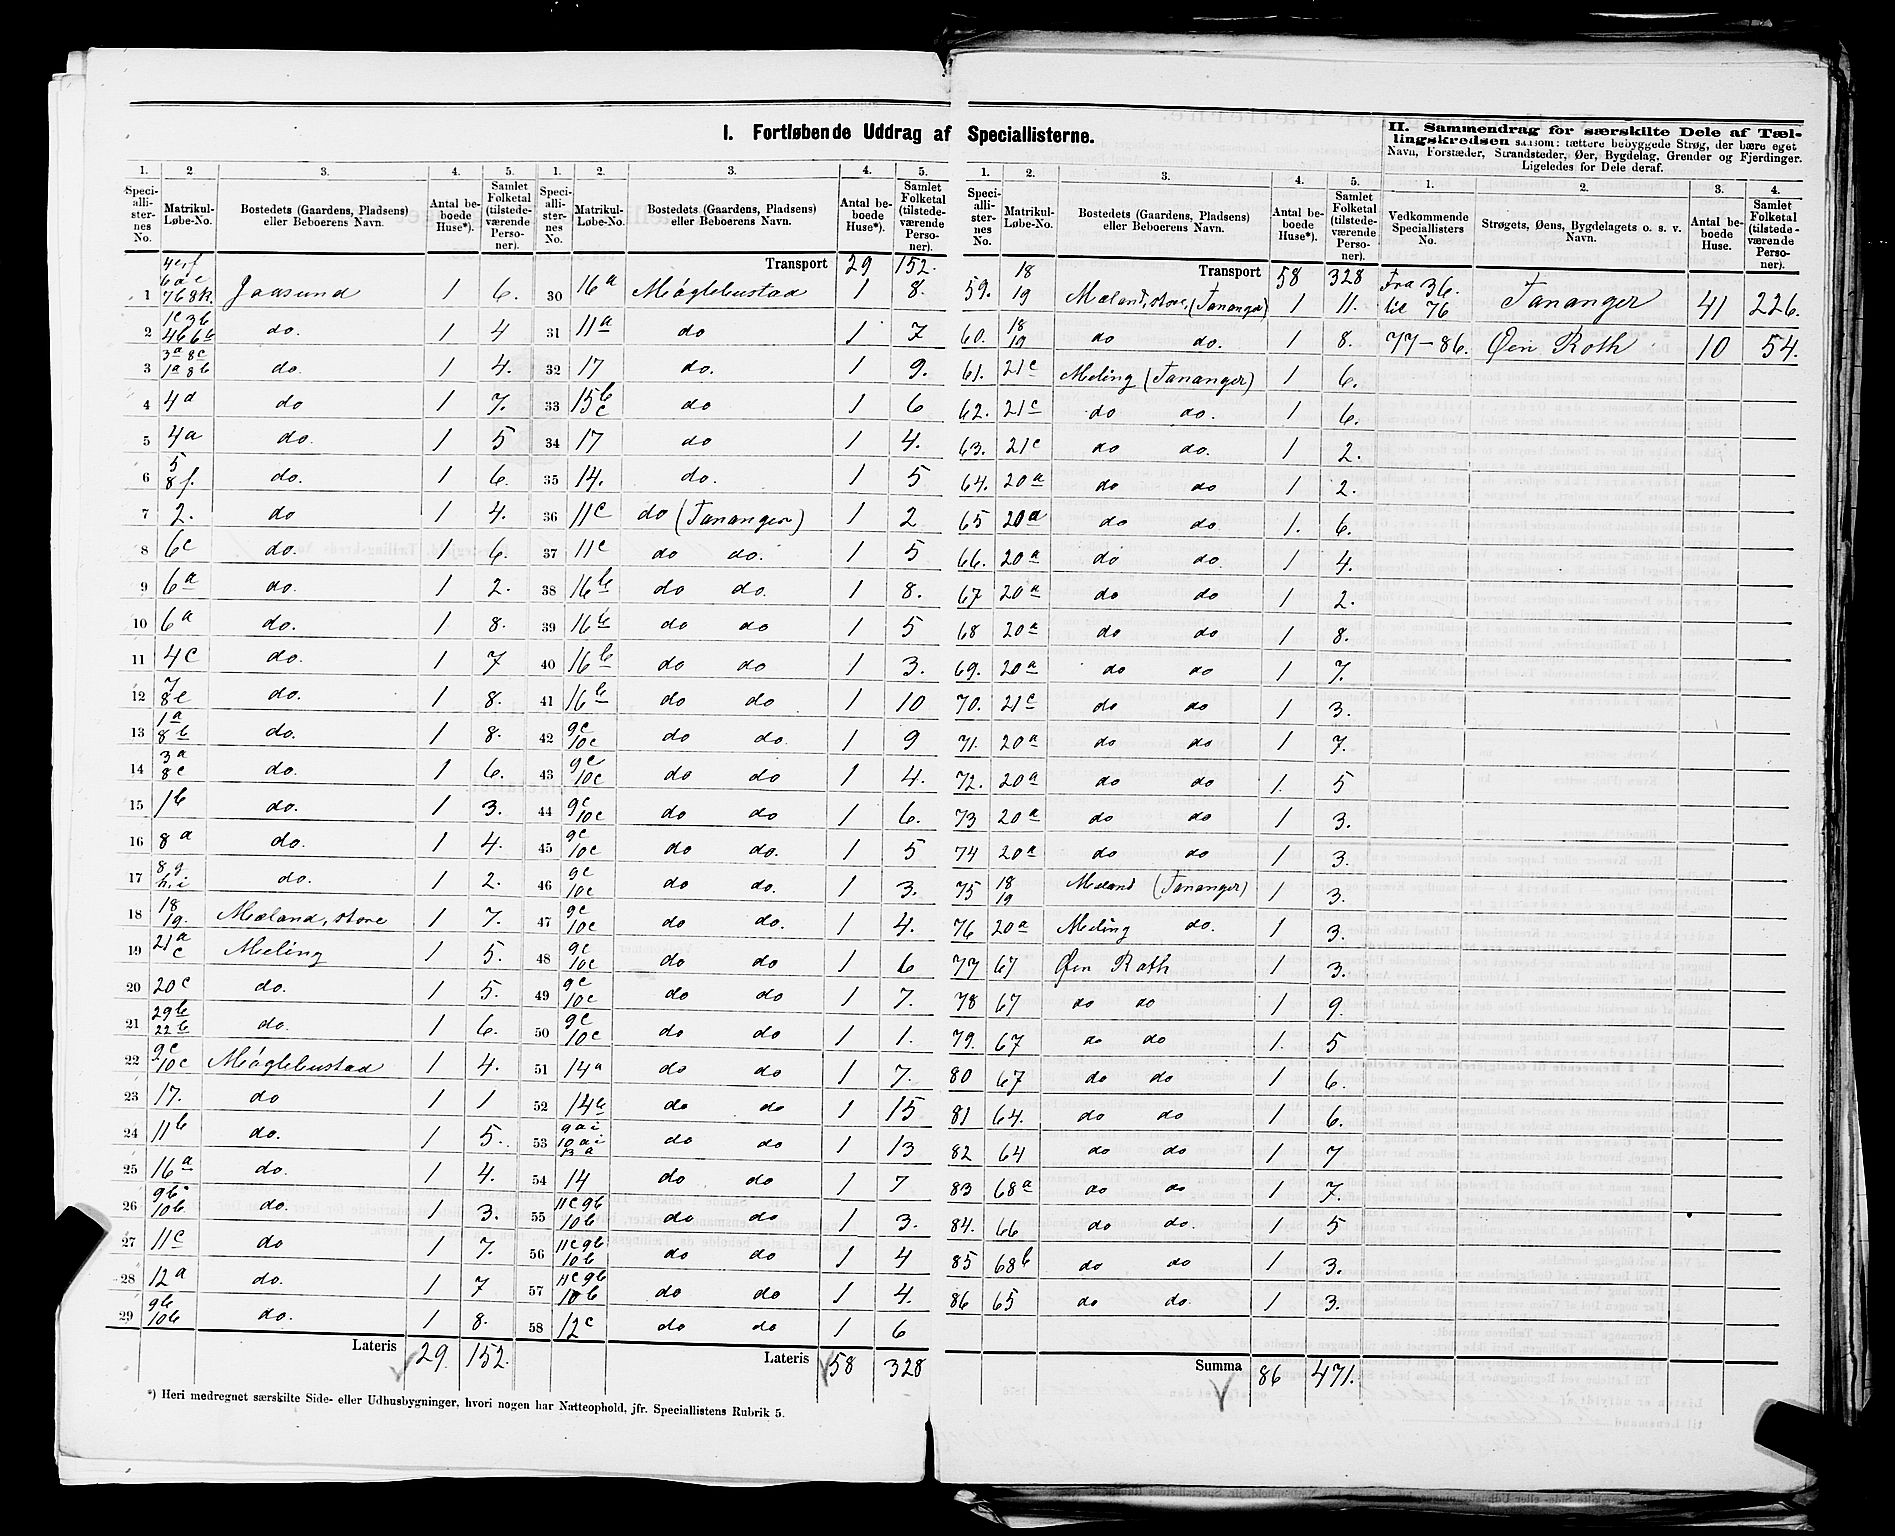 I. Fortløbende Uddrag af Speciallisterne.
1. 2 3. 4. 5.
Speciallisternes No. Matrikul-Løbe-No. Bostedets (Gaardens, Pladsens) eller Beboerens Navn. Antal beboede Huse*). Samlet Folketal (tilstedeværende Personer).
1 Jaasund 1 6.
2 do. 1 4
3 1a 8b do. 1 4.
4 4d do 1 7.
5 4a do. 1 5
6 5 8f. do. 1 6.
7 2. do 1 4.
8 6c do. 1 6.
9 6a do. 1 2.
10 6a do. 1 8.
11 4c do. 1 7
12 7 8e do. 1 8.
13 1a 8b do. 1 8.
14 3a 8c do. 1 6.
15 1b do. 1 3.
16 8a do. 1 4.
17 8g h.i do. 1 2.
18 18 19. Meland, store 1 7.
19 21a c Meling 1 5.
20 20c do. 1 5.
21 29b 22b do. 1 6.
22 9c 10c Møglebustad 1 4.
23 17. do 1 1
24 11b do. 1 5.
25 16a do. 1 4.
26 9b 10b do. 1 3.
27 11c do 1 7.
28 12a do. 1 7
29 9b 10b do. 1 8.
Lateris 29. 152.
1. 2. 3. 4. 5.
Speciallisternes No. Matrikul-Løbe-No. Bostedets (Gaardens, Pladsens) eller Beboerens Navn. Antal beboede Huse*). Samlet Folketal (tilstedeværende Personer).
Transport 29 152.
30 16a Møglebustad 1 8.
31 11a do 1 7
32 17 do. 1 9.
33 15b c do 1 6
34 17 do 1 4.
35 14. do. 1 5
36 11c do (Tananger) 1 2
37 11c do do. 1 5
38 16b do do. 1 8.
39 16b do do 1 5
40 16b do do 1 3.
41 16b do do 1 10
42 9c 10c do do. 1 9
43 9c 10c do do 1 4.
44 9c 10c do do 1 6.
45 9c 10c do do. 1 5
46 9c 10c do do. 1 3.
47 9c 10c do do. 1 4.
48 9c 10c do do 1 6
49 9c 10c do do 1 7.
50 9c 10c do do 1 1.
51 14a do do 1 7.
52 14b do do 1 15
53 9ai 10ai 13a do do 1 13
54 14 do do. 1 7
55 11c 9b 10b do do 1 3.
56 11c 9b 10b do do 1 4
57 11c 9b 10b do do 1 4.
58 12c do do 1 6
Lateris 58 328
*) Heri medregnet særskilte Side- eller Udhusbygninger, hvori nogen har Natteophold, jfr. Speciallistens Rubrik 5.
1. 2. 3. 4. 5.
Speciallisternes No. Matrikul-Løbe-No. Bostedets (Gaardens, Pladsens) eller Beboerens Navn. Antal beboede Huse*). Samlet Folketal (tilstedeværende Personer).
Transport 58 328
59. 18 19 Meland, store, (Tananger) 1 11.
60. 18 19 do do. 1 8.
61. 21c Meling (Tananger) 1 6.
62. 21c do do. 1 6.
63. 21c do do. 1 2.
64. 20a do do 1 2.
65 20a do do 1. 6.
66. 20a do do 1 4.
67 20a do do 1 2.
68 20a do do 1 8.
69. 20a do do 1 7.
70. 21c do do 1 3.
71. 20a do do 1 7.
72. 20a do do 1. 5
73 20a do do 1 3.
74 20a do do 1 3.
75 18 19 Meland (Tananger) 1 3.
76 20a Meling do. 1 3.
77 67 Øen Roth 1 3.
78 67 do do 1 9.
79. 67 do do 1. 5
80 67 do do 1 6.
81 64. do do 1 6.
82 64 do do 1 7
83 68a do do 1 7.
84. 66 do do. 1 5
85 68b do do 1 3.
86 65 do do. 1 3.
Summa 86 471.
II. Sammendrag for særskilte Dele af Tællingskredsen saasom: tættere bebyggede Strøg, der bære eget Navn, Forstæder, Strandsteder, Øer, Bygdelag, Grender og Fjerdinger. Ligeledes for Dele deraf.
1. 2. 3. 4.
Vedkommende Speciallisters No. Strøgets, Øens, Bygdelagets o. s. v. Navn. Antal beboede Huse. Samlet Folketal (tilstedeværende Personer).
Fra 36. til 76 Tananger 41 226.
77-86. Øen Roth 10 54.